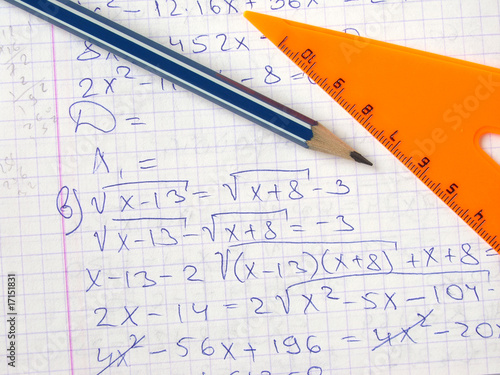 ² - 12.16x + 36x
8x - 452x -
2x² - - 8 = 0
D =
A₁ =
б) √x-13 = √x+8 - 3
√x-13 - √x+8 = -3
x-13-2 √(x-13)(x+8) + x+8 =
2x - 14 = 2√x² - 5x - 104
4x² - 56x + 196 = 4x² - 20x
10
9
8
7
5
4
Adobe Stock | #17151831